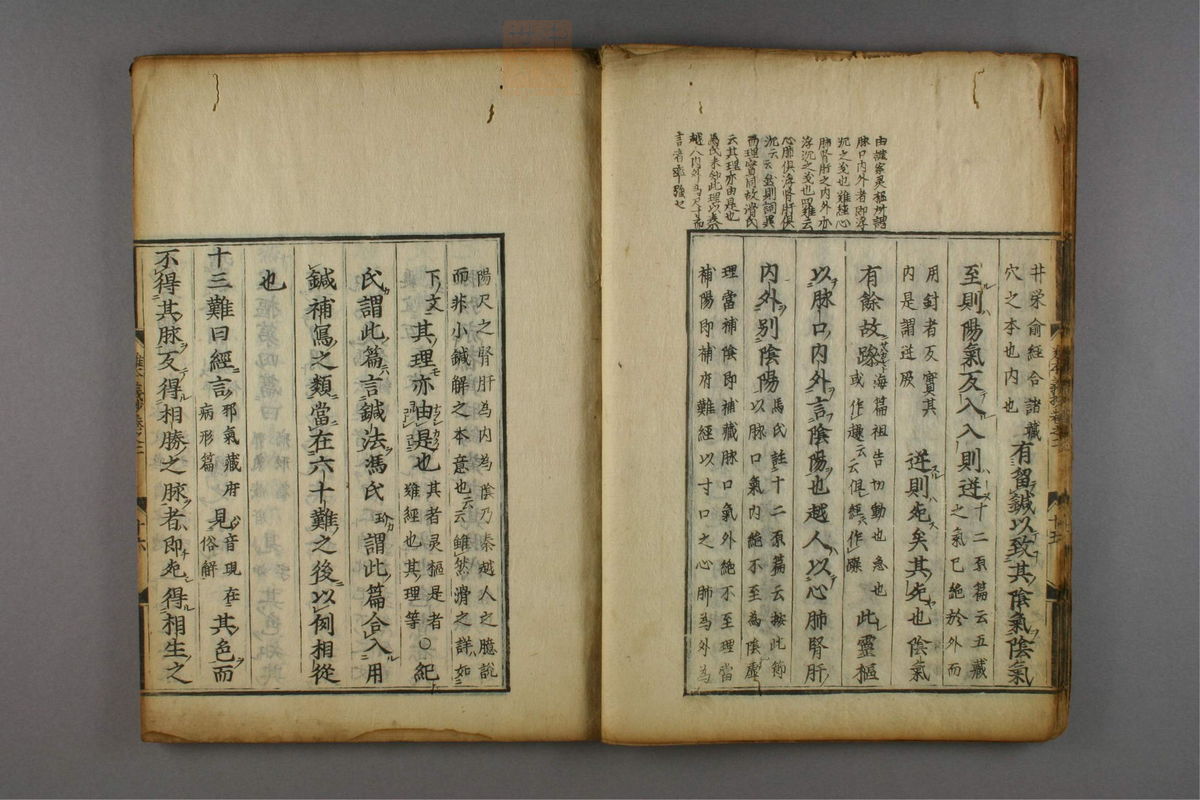 由據家灵樞所謂
脉口内外者即浮
沉之变也難経心
肺腎肝之内外亦
浮沉之变也四難云
心肺俱浮腎肝俱
沉云云然則詞異
而理實同故滑氏
云其理亦由是也
馬氏未
越人内外為尺寸而
言者牽強也
井滎俞経合諸藏
穴之本也内也
有留鍼以致其陰氣陰氣
至則陽氣反入入則逆
十二原篇云五藏
之氣已絶於外而
用針者反實其
内是謂逆厥
逆則死矣其死也陰氣
有餘故躁
海篇祖告切動也急也
或作趮云云俱経作躁
此靈樞
以脉口内外言陰陽也越人以心肺腎肝
内外別陰陽
馬氏註十二原篇云按此節
以脉口氣内絶不至為陰虛
理當補陰即補藏脉口氣外絶不至理當
補陽即補府難経以寸口之心肺為外為
陽尺之腎肝為内為陰乃秦越人之臆説
而非小鍼解之本意也云云雖然滑之詳如
下文
其理亦由是也
其者灵樞是者
難経也其理等
○紀
氏謂此篇言鍼法馮氏玠謂此篇合入用
鍼補寫之類當在六十難之後以例相從
也
十三難曰経言
邪氣藏府
病形篇
見
音現在
俗解
其色而
不得其脉反得相勝之脉者即死得相生之